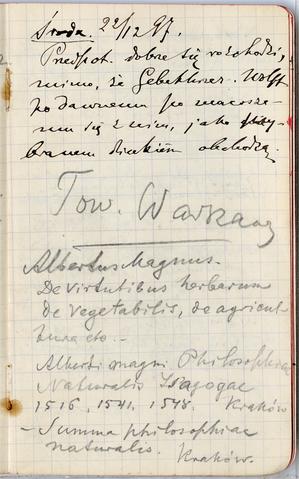 Środa. 22/12 97.
Przedśot. dobrze się rozchodzi,
mimo, że Gebethner i Wolff
po dawnemu po macosze-
mu się z nim, jako
branem dzieckiem obchodzą.
Tow. Warszaw
Albertus Magnus.
De virtutibus herbarum
de vegetabilis, de agricul
tura etc. -
Alberti magni Philosophiae
Naturalis Isagogae
1516, 1541. 1548. Kraków
- Summa philosophiae
naturalis. Kraków.